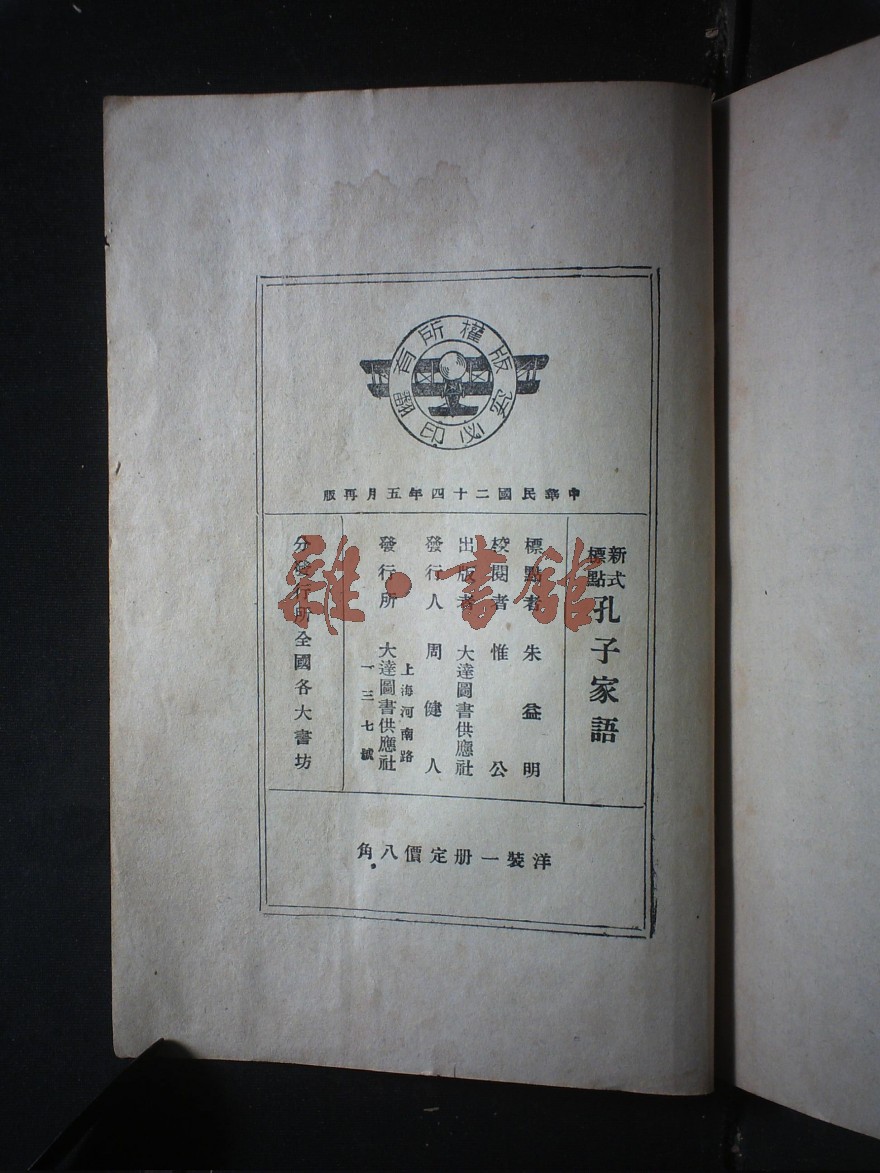 版權所有
翻印必究
中華民國二十四年五月再版
新式標點
孔子家語
標點者 朱益明
校閱者 惟公
出版者 大達圖書供應社
發行人 周健人
上海河南路
發行所 大達圖書供應社
一三七號
分發行所全國各大書坊
洋裝一册定價八角
雜·書館